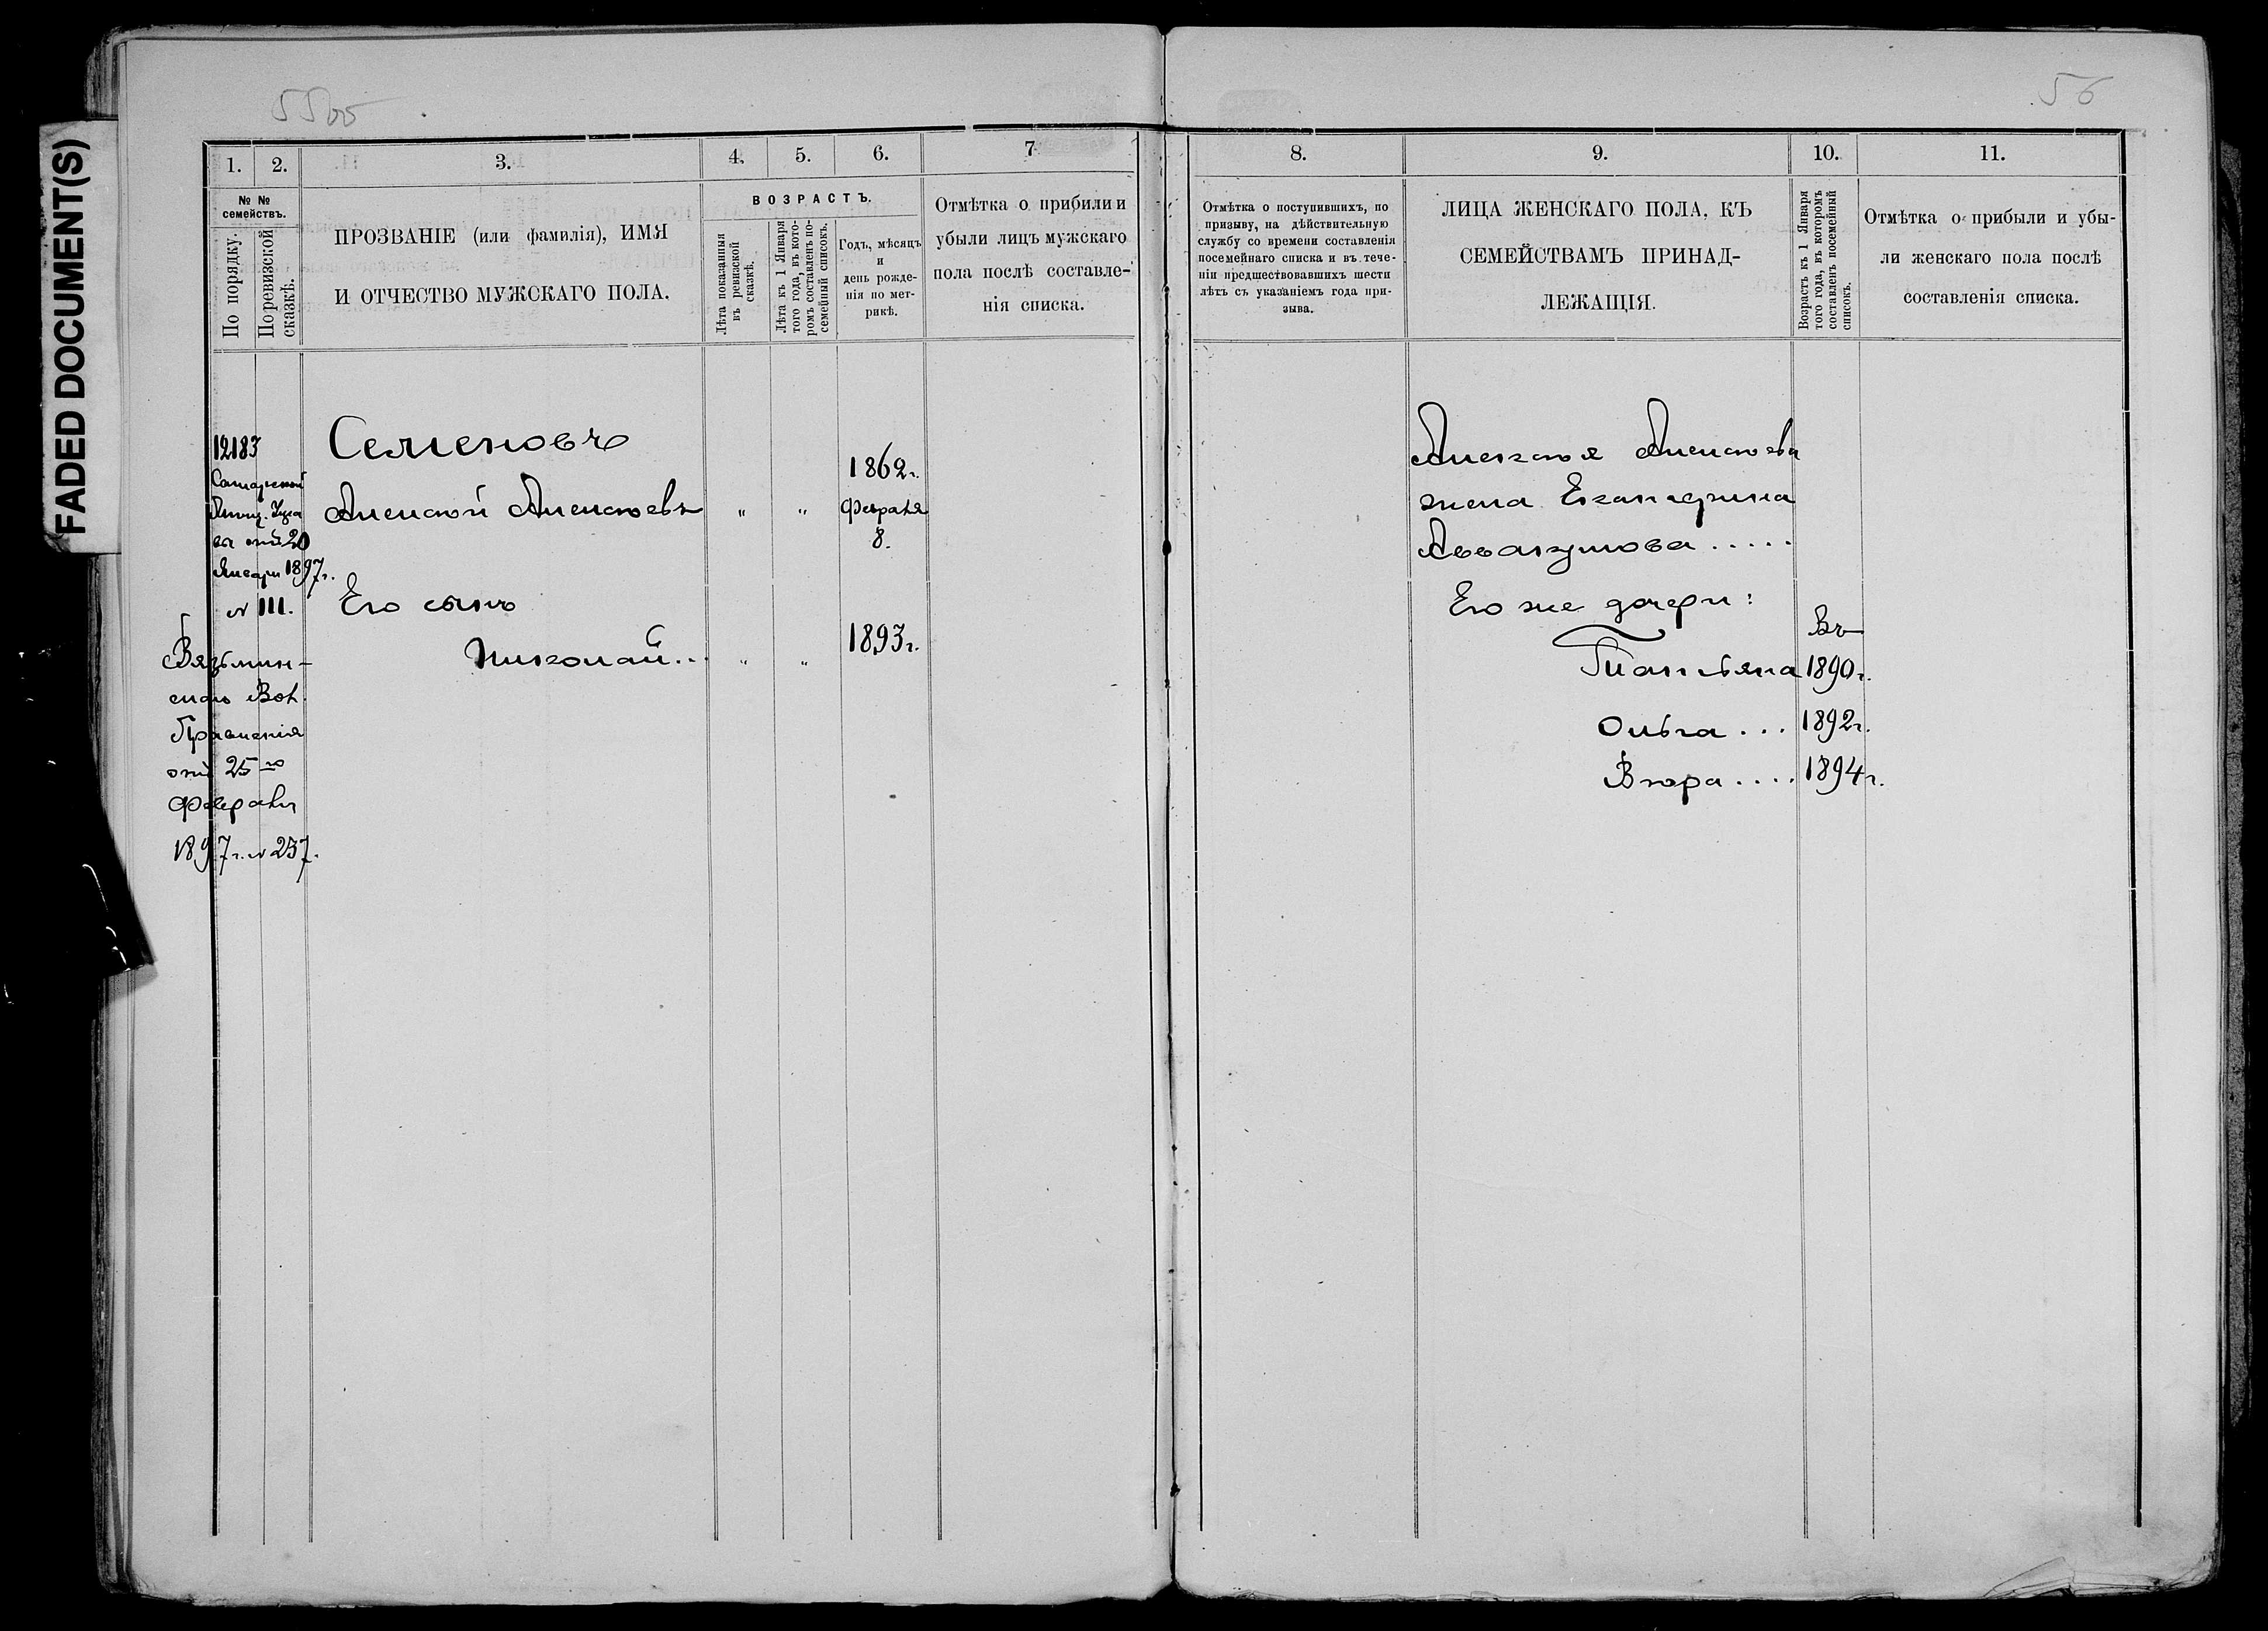 FADED DOCUMENT(S)
56
1.
2.
3.
4.
5.
6.
7.
№ №
семействъ.
По порядку.
По ревизской
сказкѣ.
ПРОЗВАНІЕ (или фамилія), ИМЯ
И ОТЧЕСТВО МУЖСКАГО ПОЛА.
ВОЗРАСТЪ.
Лѣта показанныя
въ ревизской
сказкѣ.
Лѣта къ 1 Января
того года, въ кото-
ромъ составленъ по-
семейный списокъ.
Годъ, мѣсяцъ
и
день рожде-
нія по мет-
рикѣ.
Отмѣтка о прибыли и
убыли лицъ мужскаго
пола послѣ составле-
нія списка.
12183
отъ 20
Января 1897г.
№ 111.
Вол.
Правленія
отъ 25-го
Февраля
1897г. № 257.
Семеновъ
Алексѣй Алексѣевъ " "
1862г.
Февраля
8.
Его сынъ
Николай... " " 1893г.
8.
9.
10.
11.
Отмѣтка о поступившихъ, по
призыву, на дѣйствительную
службу со времени составленія
посемейнаго списка и въ тече-
ніи предшествовавшихъ шести
лѣтъ съ указаніемъ года при-
зыва.
ЛИЦА ЖЕНСКАГО ПОЛА, КЪ
СЕМЕЙСТВАМЪ ПРИНАД-
ЛЕЖАЩІЯ.
Возрастъ къ 1 Января
того года, въ которомъ
составленъ посемейный
списокъ.
Отмѣтка о прибыли и убы-
ли женскаго пола послѣ
составленія списка.
Алексѣя Алексѣева
жена Екатерина
Аввакумова.....
Его же дочери:
Въ
Татьяна 1890г.
Ольга... 1892г.
Вѣра.... 1894г.